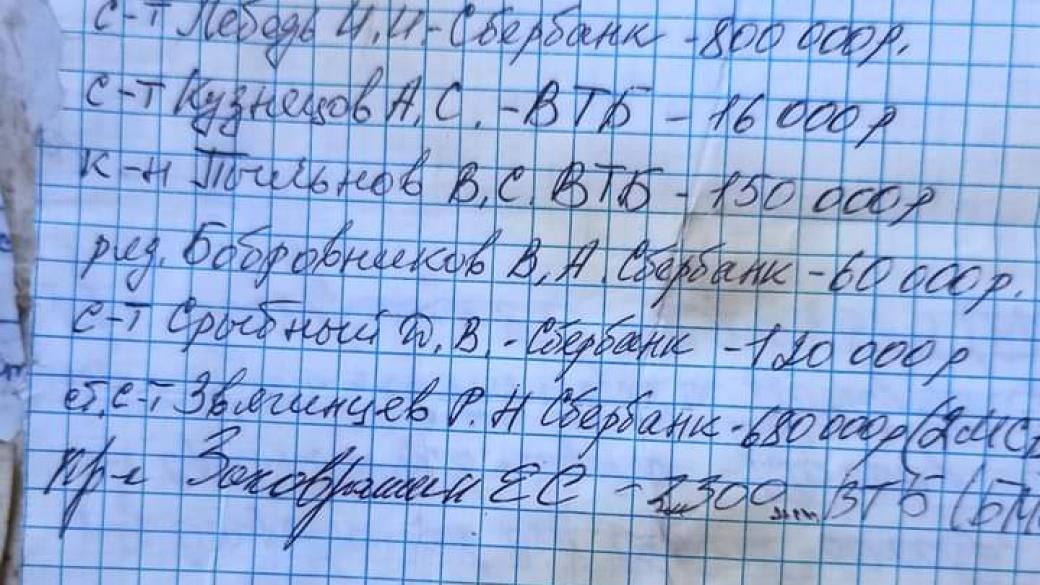 с-т Лебедь И.И.-Сбербанк -800 000р.
с-т Кузнецов А.С. -ВТБ - 16 000р
к-н Тыльнов В.С. ВТБ - 150 000р
ряд. Бобровников В.А. Сбербанк -60 000р.
с-т Срыбный Д.В. -Сбербанк -120 000р
ст. с-т Звягинцев Р.Н Сбербанк-680 000р (2 мс
пр-к ЕС ВТБ (БМ